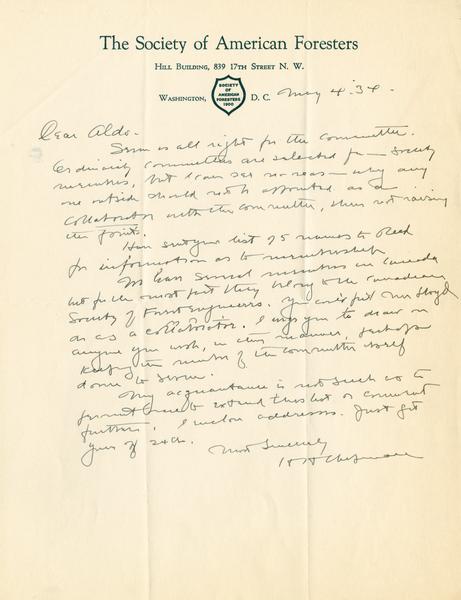 The Society of American Foresters
Hill Building, 839 17th Street N. W.
SOCIETY OF AMERICAN FORESTERS 1900
Washington, D. C. May 4 '34.
Dear Aldo-
Seven is all right for the committee.
Ordinarily committees are selected from Society
members, but I can see no reason why any
one outside should not be appointed as a
collaborator with the committee, thus not raising
the point.
Have sent your list of 5 names to Reed
for information as to membership.
We have several members in Canada
but for the most part they belong to the Canadian
Society of Forest Engineers. You could put Lloyd
on as a collaborator. I urge you to draw in
anyone you wish, in this manner, perhaps
keeping the number of the committee itself
down to seven.
My acquaintance is not such as to
permit me to extend this list or comment
further. I enclose addresses. Just got
yours of 24th.
Most Sincerely
H H Chapman